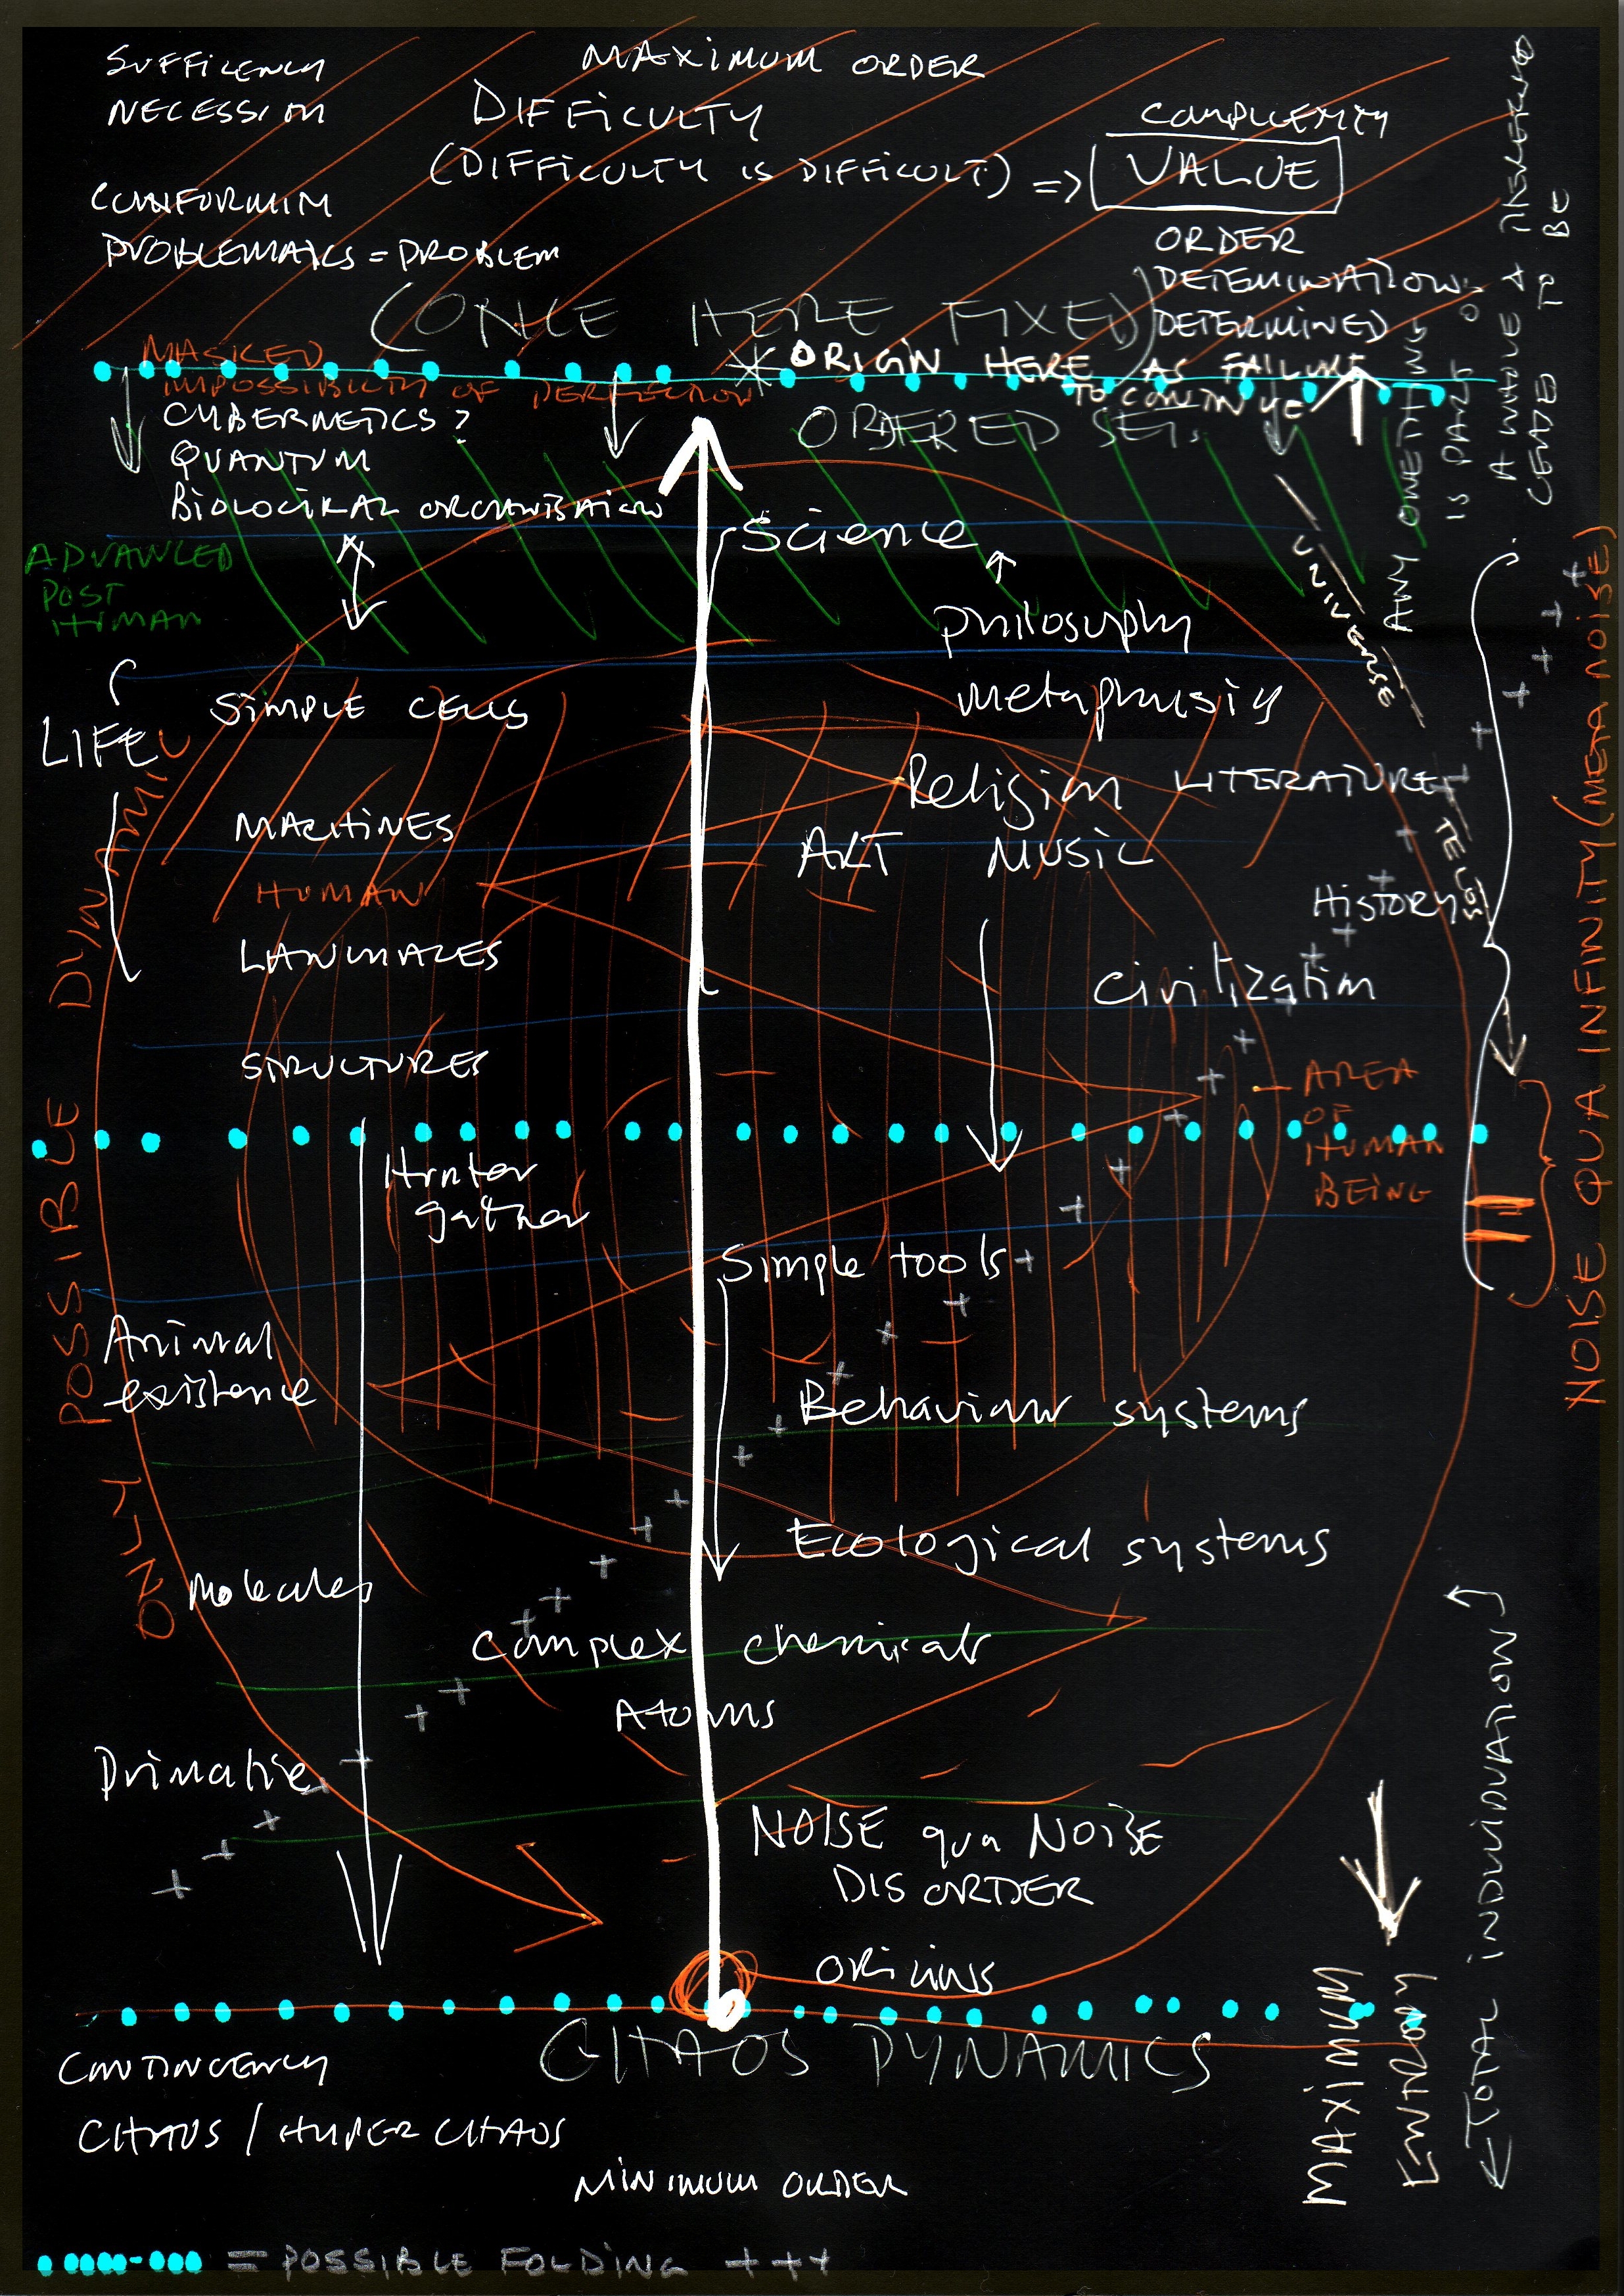 SUFFICENCY
NECESSION
MAXIMUM ORDER
DIFFICULTY
(DIFFICULTY IS DIFFICULT) =>
COMPLEXITY
VALUE
CONFORMIM
PROBLEMATICS = PROBLEM
ORDER
DETEMINATION
DETERMINED
(ONCE HERE FIXED)
MASKED
IMPOSSIBILTY OF PERFECTION
ORIGIN HERE AS FAILURE
TO CONTINUE
ORDERED SET.
CYBERNETICS?
QUANTUM
BIOLOGICAL ORGANISATION
ANY ONE THING
IS PART OF
A WHOLE & THEREFORE
CEASED TO BE
UNIVERSE
TELOS
Science
ADVANCED
POST
HUMAN
Philosophy
metaphysics
SIMPLE CELLS
LIFE
Religion LITERATURE
MACHINES
ART MUSIC
HUMAN
History
LANGUAGES
Civilization
STRUCTURES
AREA
OF
HUMAN
BEING
NOISE QUA INFINITY (META NOISE)
ONLY POSSIBLE POSSIBLE DYNAMIC
Hunter
gather
Simple tools
Animal
existence
Behaviour systems
Ecological systems
Molecules
Complex chemicals
Atoms
Primative
NOISE qua NOISE
DISORDER
ORIGINS
CHAOS DYNAMICS
CONTINGENCY
CHAOS / HYPER CHAOS
MINIMUM ORDER
MAXIMUM
ENTROPY
TOTAL INDIVIDUATION
= POSSIBLE FOLDING +++